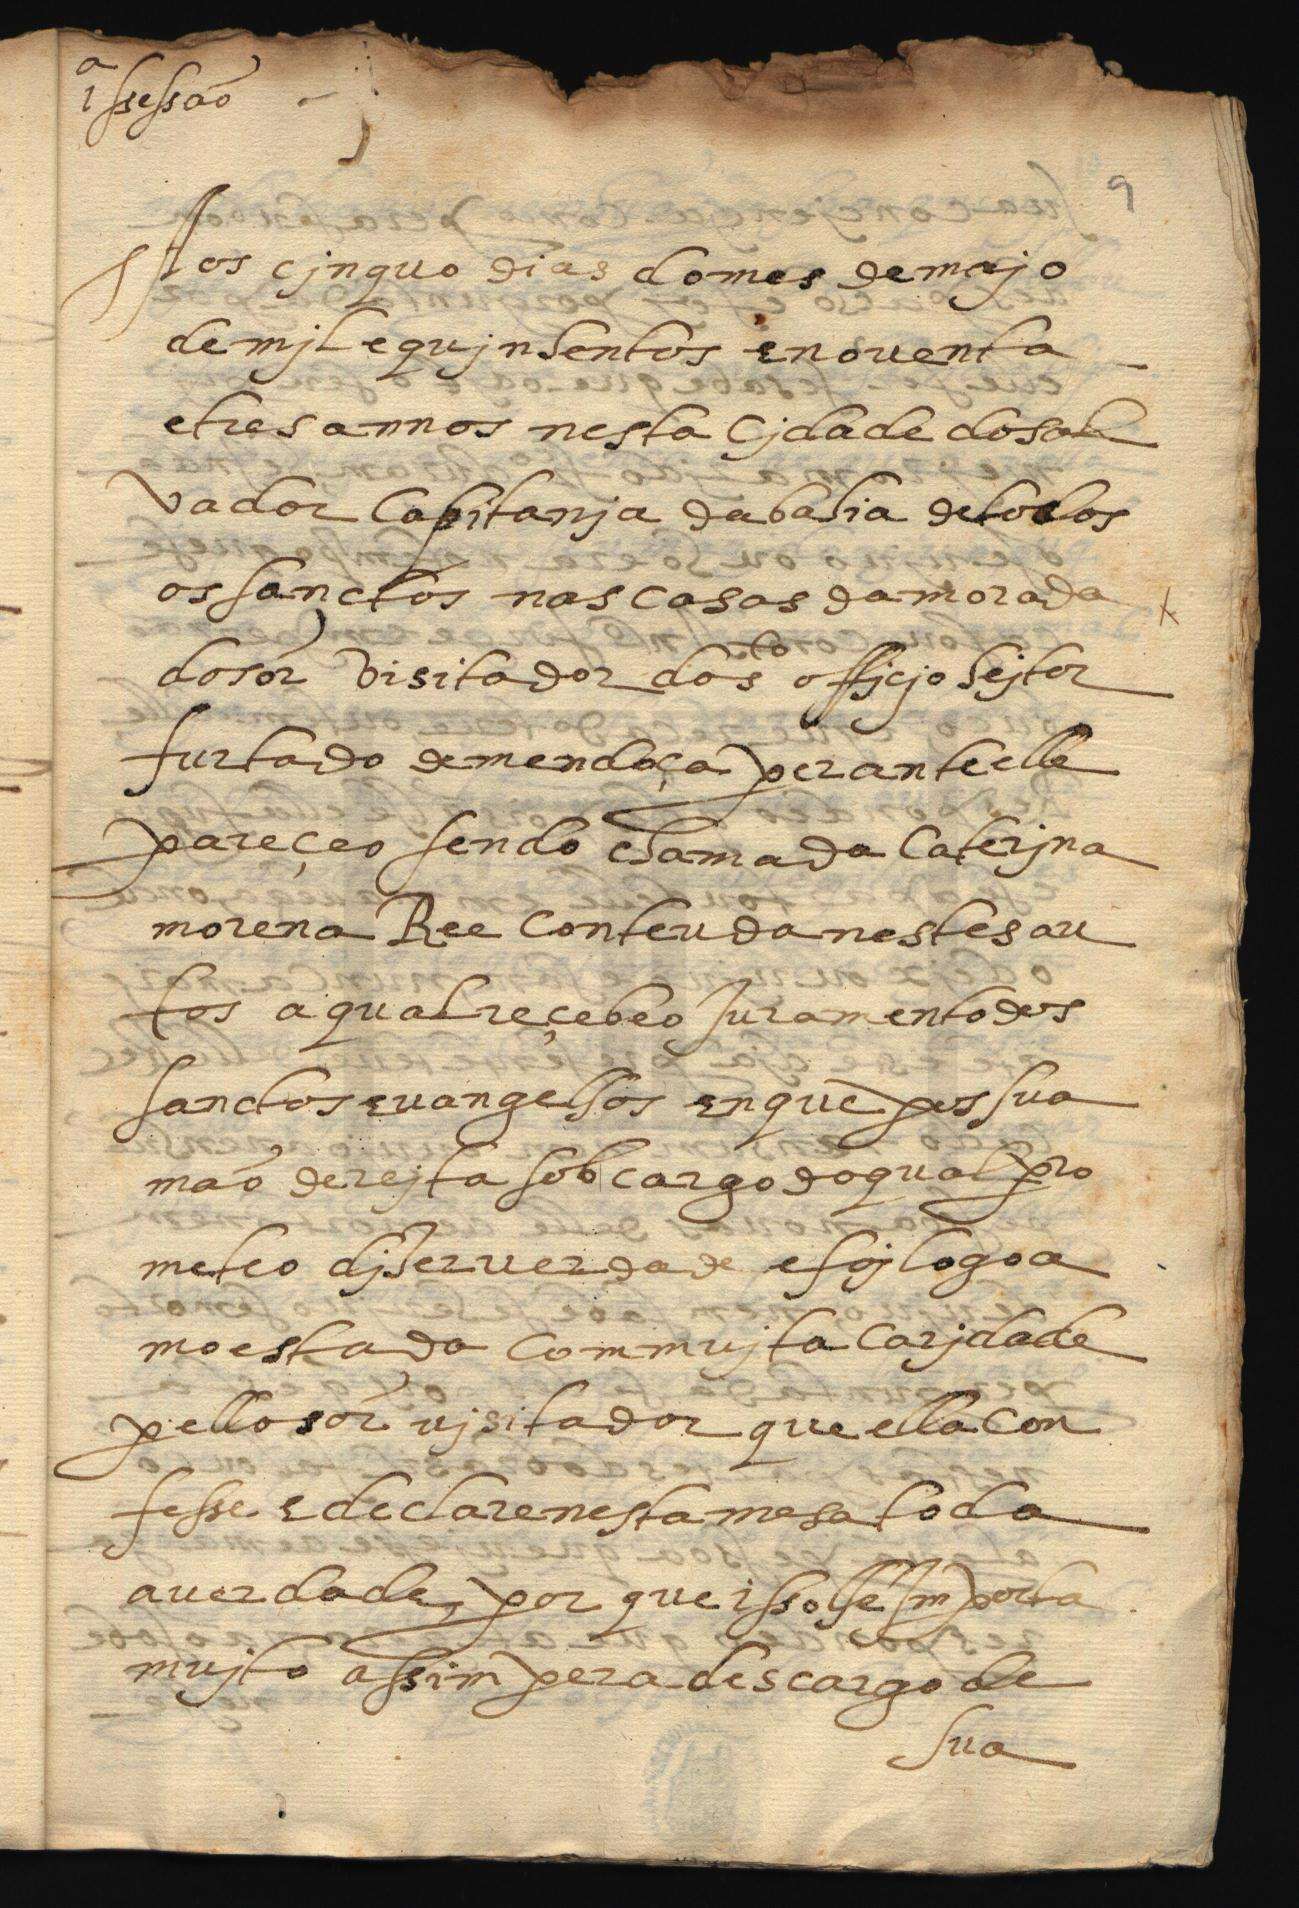 1ª ssessão
9
Aos cjnquo dias do mes de majo
de mjl e qujnhentos e nouenta
e tres annos nesta cjdade do sal
uador Capitanja da bahia de todos
os sanctos nas casas da morada
do sõr visitador do s.to officjo hejtor
furtado de mendoça perante elle
pareçeo sendo chamada Caterjna
morena Ree conteuda nestes au
tos a qual reçebeo Juramento dos
sanctos euangelhos en que pos sua
mão derejta sob cargo do qual pro
meteo djzer uerdade e foj logo a
moestada com mujta carjdade
pello sõr ujsitador que ella con
fesse e declare nesta mesa toda
a uerdade, por que isso lhe Importa
mujto assim pera descargo de
sua